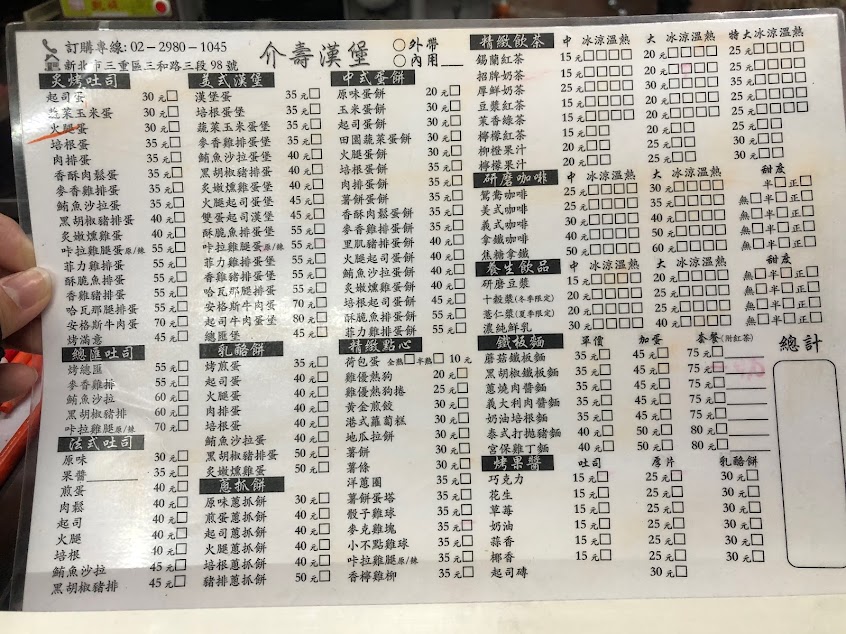 訂購專線: 02-2980-1045
新北市三重區三和路三段98號
介壽漢堡
○外帶
○內用
炙烤吐司
起司蛋 30元□
蔬菜玉米蛋 35元□
火腿蛋 30元□
培根蛋 35元□
肉排蛋 35元□
香酥肉鬆蛋 35元□
麥香雞排蛋 35元□
鮪魚沙拉蛋 35元□
黑胡椒豬排蛋 40元□
炙嫩燻雞蛋 40元□
咔拉雞腿蛋原/辣 55元□
菲力雞排蛋 55元□
酥脆魚排蛋 55元□
香雞豬排蛋 55元□
哈瓦那腿排蛋 55元□
安格斯牛肉蛋 70元□
烤滿意
總匯吐司
烤總匯 55元□
麥香雞排 55元□
鮪魚沙拉 60元□
黑胡椒豬排 60元□
咔拉雞腿原/辣 70元□
法式吐司
原味 30元□
果醬 35元□
煎蛋 40元□
肉鬆 40元□
起司 40元□
火腿 40元□
培根 40元□
鮪魚沙拉 45元□
黑胡椒豬排 45元□
美式漢堡
漢堡蛋 35元□
培根蛋堡 35元□
蔬菜玉米蛋堡 35元□
麥香雞排蛋堡 35元□
鮪魚沙拉蛋堡 40元□
黑胡椒豬蛋堡 40元□
炙嫩燻雞蛋堡 40元□
火腿起司蛋堡 40元□
雙蛋起司漢堡 45元□
酥脆魚排蛋堡 45元□
咔拉雞腿蛋原/辣 55元□
菲力雞排蛋堡 55元□
香雞豬排蛋堡 55元□
哈瓦那腿蛋堡 55元□
安格斯牛肉蛋 70元□
起司牛肉蛋堡 80元□
總匯堡 55元□
乳酪餅
烤煎蛋 35元□
起司蛋 40元□
火腿蛋 40元□
肉排蛋 40元□
培根蛋 40元□
鮪魚沙拉蛋 45元□
黑胡椒豬排蛋 50元□
炙嫩燻雞蛋 50元□
蔥抓餅
原味蔥抓餅 30元□
煎蛋蔥抓餅 40元□
起司蔥抓餅 40元□
火腿蔥抓餅 40元□
培根蔥抓餅 40元□
豬排蔥抓餅 50元□
中式蛋餅
原味蛋餅 20元□
玉米蛋餅 30元□
起司蛋餅 30元□
田園蔬菜蛋餅 30元□
火腿蛋餅 30元□
培根蛋餅 30元□
肉排蛋餅 35元□
薯餅蛋餅 35元□
香酥肉鬆蛋餅 35元□
麥香雞排蛋餅 35元□
里肌豬排蛋餅 40元□
火腿起司蛋餅 40元□
鮪魚沙拉蛋餅 40元□
炙嫩燻雞蛋餅 40元□
培根起司蛋餅 45元□
酥脆魚排蛋餅 55元□
菲力雞排蛋餅 55元□
精緻點心
荷包蛋 全熟□半熟□ 10元
雞優熱狗 20元□
雞優熱狗捲 25元□
黃金煎餃 30元□
港式蘿蔔糕 30元□
地瓜拉餅 30元□
薯餅 30元□
薯條 30元□
洋蔥圈 35元□
薯餅蛋塔 35元□
骰子雞球 35元□
麥克雞塊 35元□
小不點雞球 35元□
咔拉雞腿原/辣 35元□
香檸雞柳 35元□
精緻飲茶 中 冰涼溫熱 大 冰涼溫熱 特大 冰涼溫熱
錫蘭紅茶 15元□□□□ 20元□□□□ 25元□□□□
招牌奶茶 15元□□□□ 20元□□□□ 25元□□□□
厚鮮奶茶 20元□□□□ 30元□□□□ 35元□□□□
豆漿紅茶 15元□□□□ 20元□□□□ 25元□□□□
茉香綠茶 15元□□ 20元□□ 25元□□
檸檬紅茶 15元□□ 20元□□ 30元□□
柳橙果汁 20元□□ 25元□□ 30元□□
檸檬果汁 20元□□ 25元□□ 30元□□
研磨咖啡 中 冰涼溫熱 大 冰涼溫熱 甜度
鴛鴦咖啡 25元□□□□ 30元□□□□ 無□半□正□
美式咖啡 25元□□□□ 35元□□□□ 無□半□正□
義式咖啡 30元□□□□ 40元□□□□ 無□半□正□
拿鐵咖啡 40元□□□□ 50元□□□□ 無□半□正□
焦糖拿鐵 50元□□□□ 60元□□□□
養生飲品 中 冰涼溫熱 大 冰涼溫熱 甜度
研磨豆漿 15元□□□□ 20元□□□□ 無□半□正□
十穀漿(冬季限定) 20元□□□□ 25元□□□□ 無□半□正□
薏仁漿(夏季限定) 20元□□□□ 25元□□□□ 無□半□正□
濃純鮮乳 30元□□□□ 40元□□□□ 無□半□正□
鐵板麵 單價 加蛋 套餐(附紅茶)
蘑菇鐵板麵 35元□ 45元□ 75元□
黑胡椒鐵板麵 35元□ 45元□ 75元□
蔥燒肉醬麵 35元□ 45元□ 75元□
義大利肉醬麵 35元□ 45元□ 75元□
奶油培根麵 35元□ 45元□ 75元□
泰式打拋豬麵 40元□ 50元□ 80元□
宮保雞丁麵 40元□ 50元□ 80元□
烤果醬 吐司 厚片 乳酪餅
巧克力 15元□ 25元□ 30元□
花生 15元□ 25元□ 30元□
草莓 15元□ 25元□ 30元□
奶油 15元□ 25元□ 30元□
蒜香 15元□ 25元□ 30元□
椰香 15元□ 25元□ 30元□
起司磚 30元□
總計